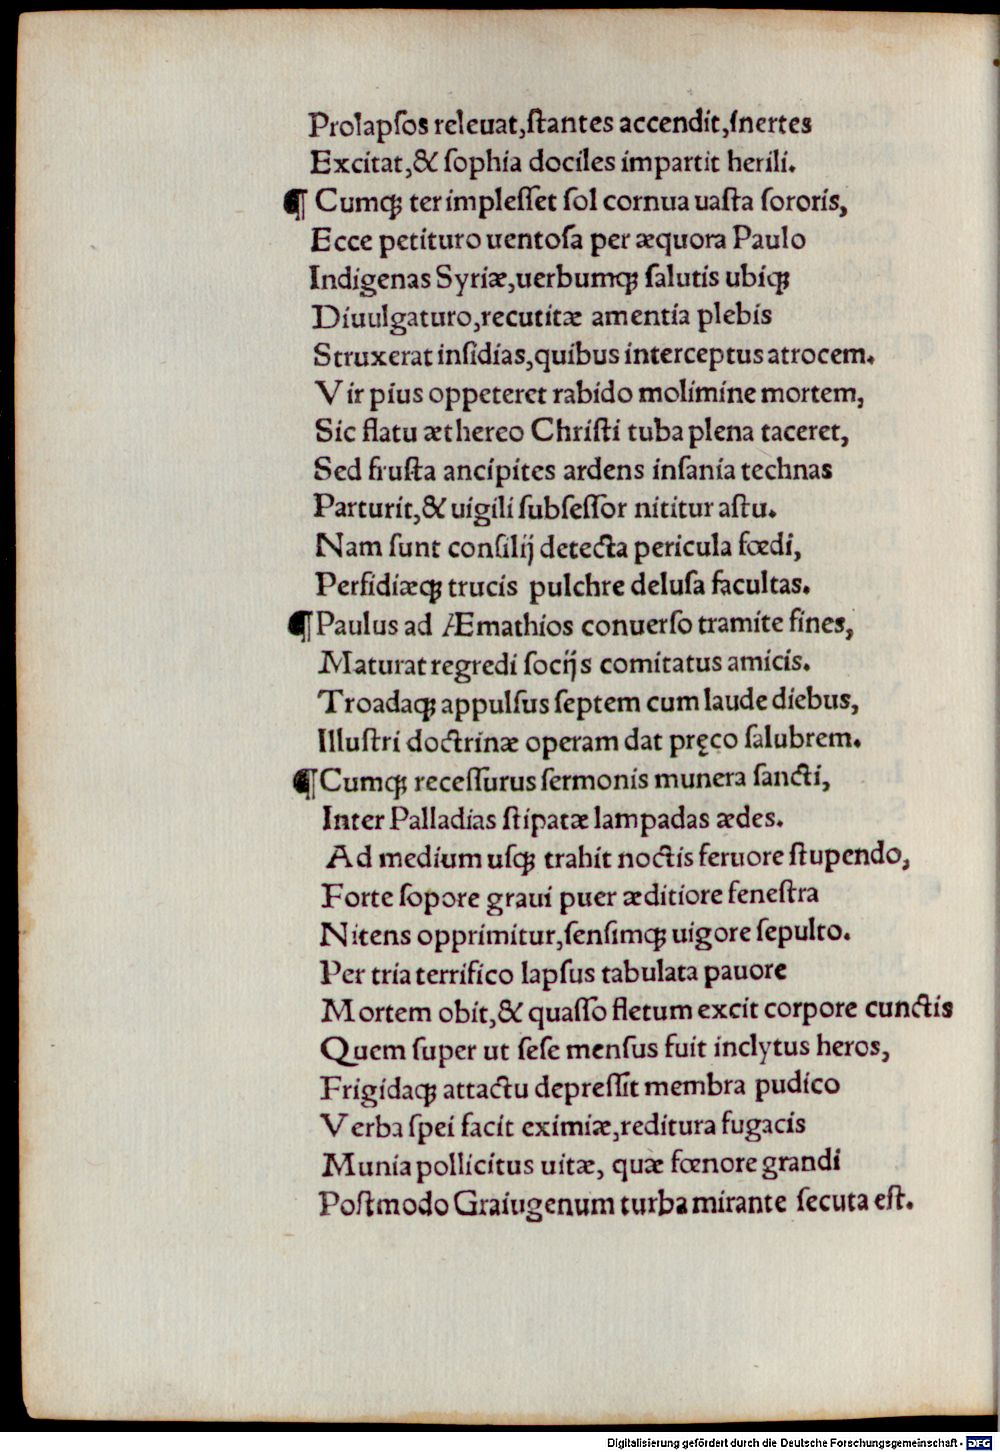 Prolapſos releuat,ſtantes accendit,inertes
Excitat,& ſophia dociles impartit herili.
¶ Cumqꝫ ter impleſſet ſol cornua uaſta ſororis,
Ecce petituro uentoſa per æquora Paulo
Indigenas Syriæ,uerbumqꝫ ſalutis ubiqꝫ
Diuulgaturo,recutitæ amentia plebis
Struxerat inſidias,quibus interceptus atrocem.
Vir pius oppeteret rabido molimine mortem,
Sic flatu æthereo Chriſti tuba plena taceret,
Sed fruſta ancipites ardens inſania technas
Parturit,& uigili ſubſeſſor nititur aſtu.
Nam ſunt conſilij detecta pericula fœdi,
Perfidiæqꝫ trucis pulchre deluſa facultas.
¶ Paulus ad Æmathios conuerſo tramite fines,
Maturat regredi ſocijs comitatus amicis.
Troadaqꝫ appulſus ſeptem cum laude diebus,
Illuſtri doctrinæ operam dat pręco ſalubrem.
¶ Cumqꝫ receſſurus ſermonis munera ſancti,
Inter Palladias ſtipatæ lampadas ædes.
Ad medium uſqꝫ trahit noctis feruore ſtupendo,
Forte ſopore graui puer æditiore feneſtra
Nitens opprimitur,ſenſimqꝫ uigore ſepulto.
Per tria terrifico lapſus tabulata pauore
Mortem obit,& quaſſo fletum excit corpore cunctis
Quem ſuper ut ſeſe menſus fuit inclytus heros,
Frigidaqꝫ attactu depreſſit membra pudico
Verba ſpei facit eximiæ,reditura fugacis
Munia pollicitus uitæ, quæ fœnore grandi
Poſtmodo Graiugenum turba mirante ſecuta eſt.
Digitalisierung gefördert durch die Deutsche Forschungsgemeinschaft - DFG